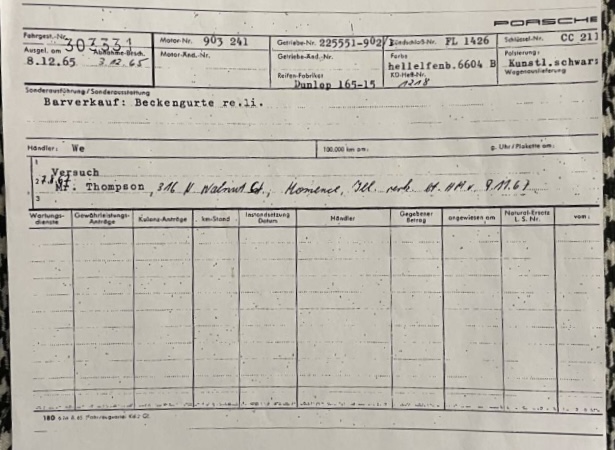 PORSCHE
Fahrgest.-Nr. 303331 Motor-Nr. 903 241 Getriebe-Nr. 225551-902/1 Zündschloß-Nr. FL 1426 Schlüssel-Nr. CC 211
Ausgel. am Abnahme-Besch. Motor-Änd.-Nr. Getriebe-Änd.-Nr. Farbe Polsterung:
8.12.65 3.12.65 hellelfenb.6604 B Kunstl.schwarz
Reifen-Fabrikat KD-Heft-Nr. Wagenauslieferung
Dunlop 165-15 1218
Sonderausführung/Sonderausstattung
Barverkauf: Beckengurte re.li.
Händler: We 100.000 km am: g. Uhr/Plakette am:
1 Versuch
2 Mr. Thompson, 316 N Walnut St, Momence, Ill. 9.11.67
3
Wartungs-dienste Gewährleistungs-Anträge Kulanz-Anträge km-Stand Instandsetzung Datum Händler Gegebener Betrag angewiesen am Natural-Ersatz L. S. Nr. vom:
180